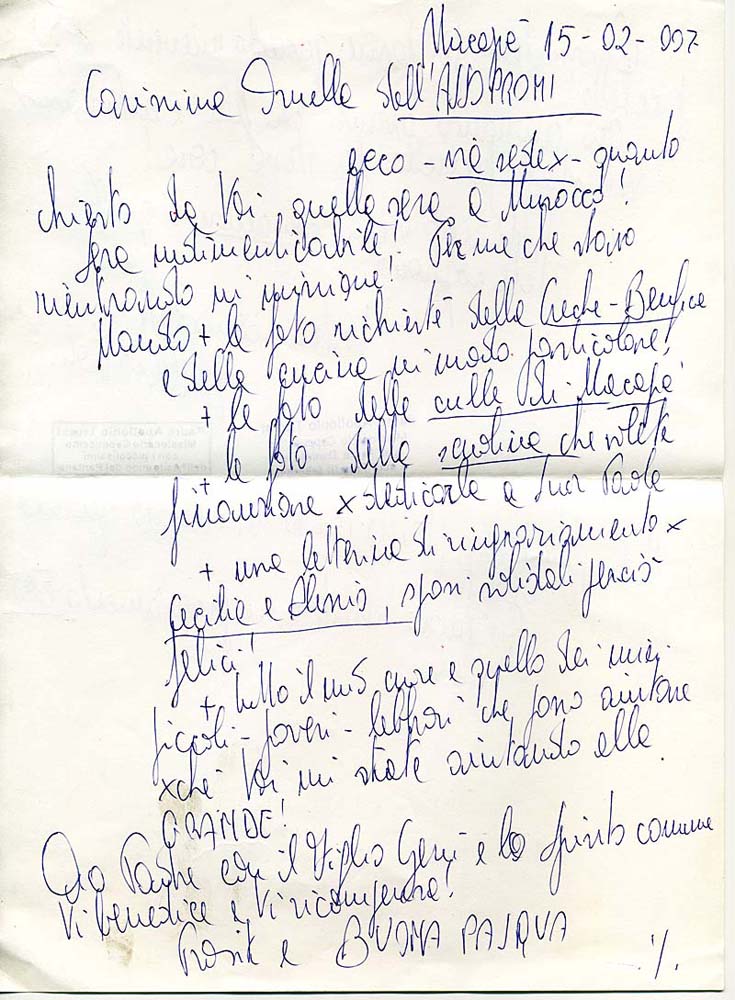 Macapà 15-02-997
Carissima Ornella dell'ALDOPROMI
ecco - via sedex - quanto
chiesto da Voi quella sera a Murocco!
Sera indimenticabile! Per me che stavo
rientrando fu
Mando + le foto richieste della Creche-Benfica
e della cucina in modo particolare!
+ le foto delle culle di Macapà
+ le foto della scuolina che volete
finanziare x dedicarla a Suor Paola
+ una letterina di ringraziamento x
Cecilia e Alessio, sposi solidali perciò
felici!
+ tutto il mio cuore e quello dei miei
piccoli - poveri - lebbrosi che posso aiutare
xchè Voi mi state aiutando alla
GRANDE!
Dio Padre con il Figlio Gesù e lo Spirito comune
Vi benedice e Vi ricompensa!
Prosit e BUONA PASQUA
./.